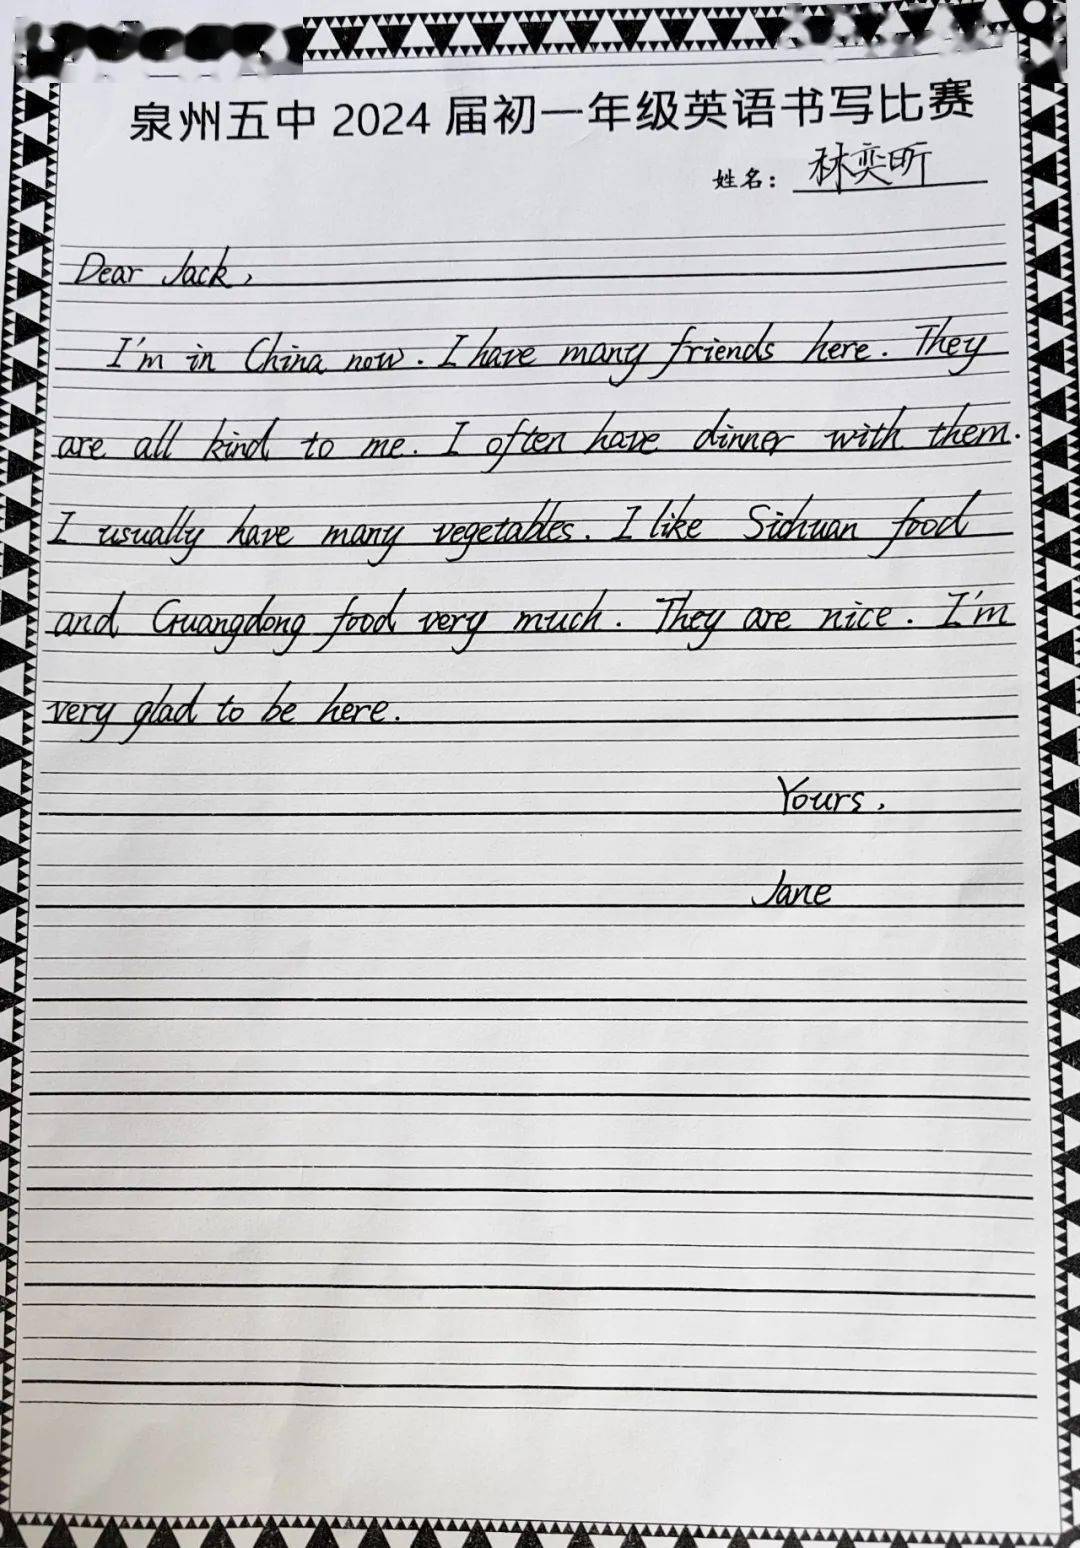 泉州五中 2024 届初一年级英语书写比赛
姓名：林奕昕
Dear Jack,
I'm in China now. I have many friends here. They
are all kind to me. I often have dinner with them.
I usually have many vegetables. I like Sichuan food
and Guangdong food very much. They are nice. I'm
very glad to be here.
Yours,
Jane